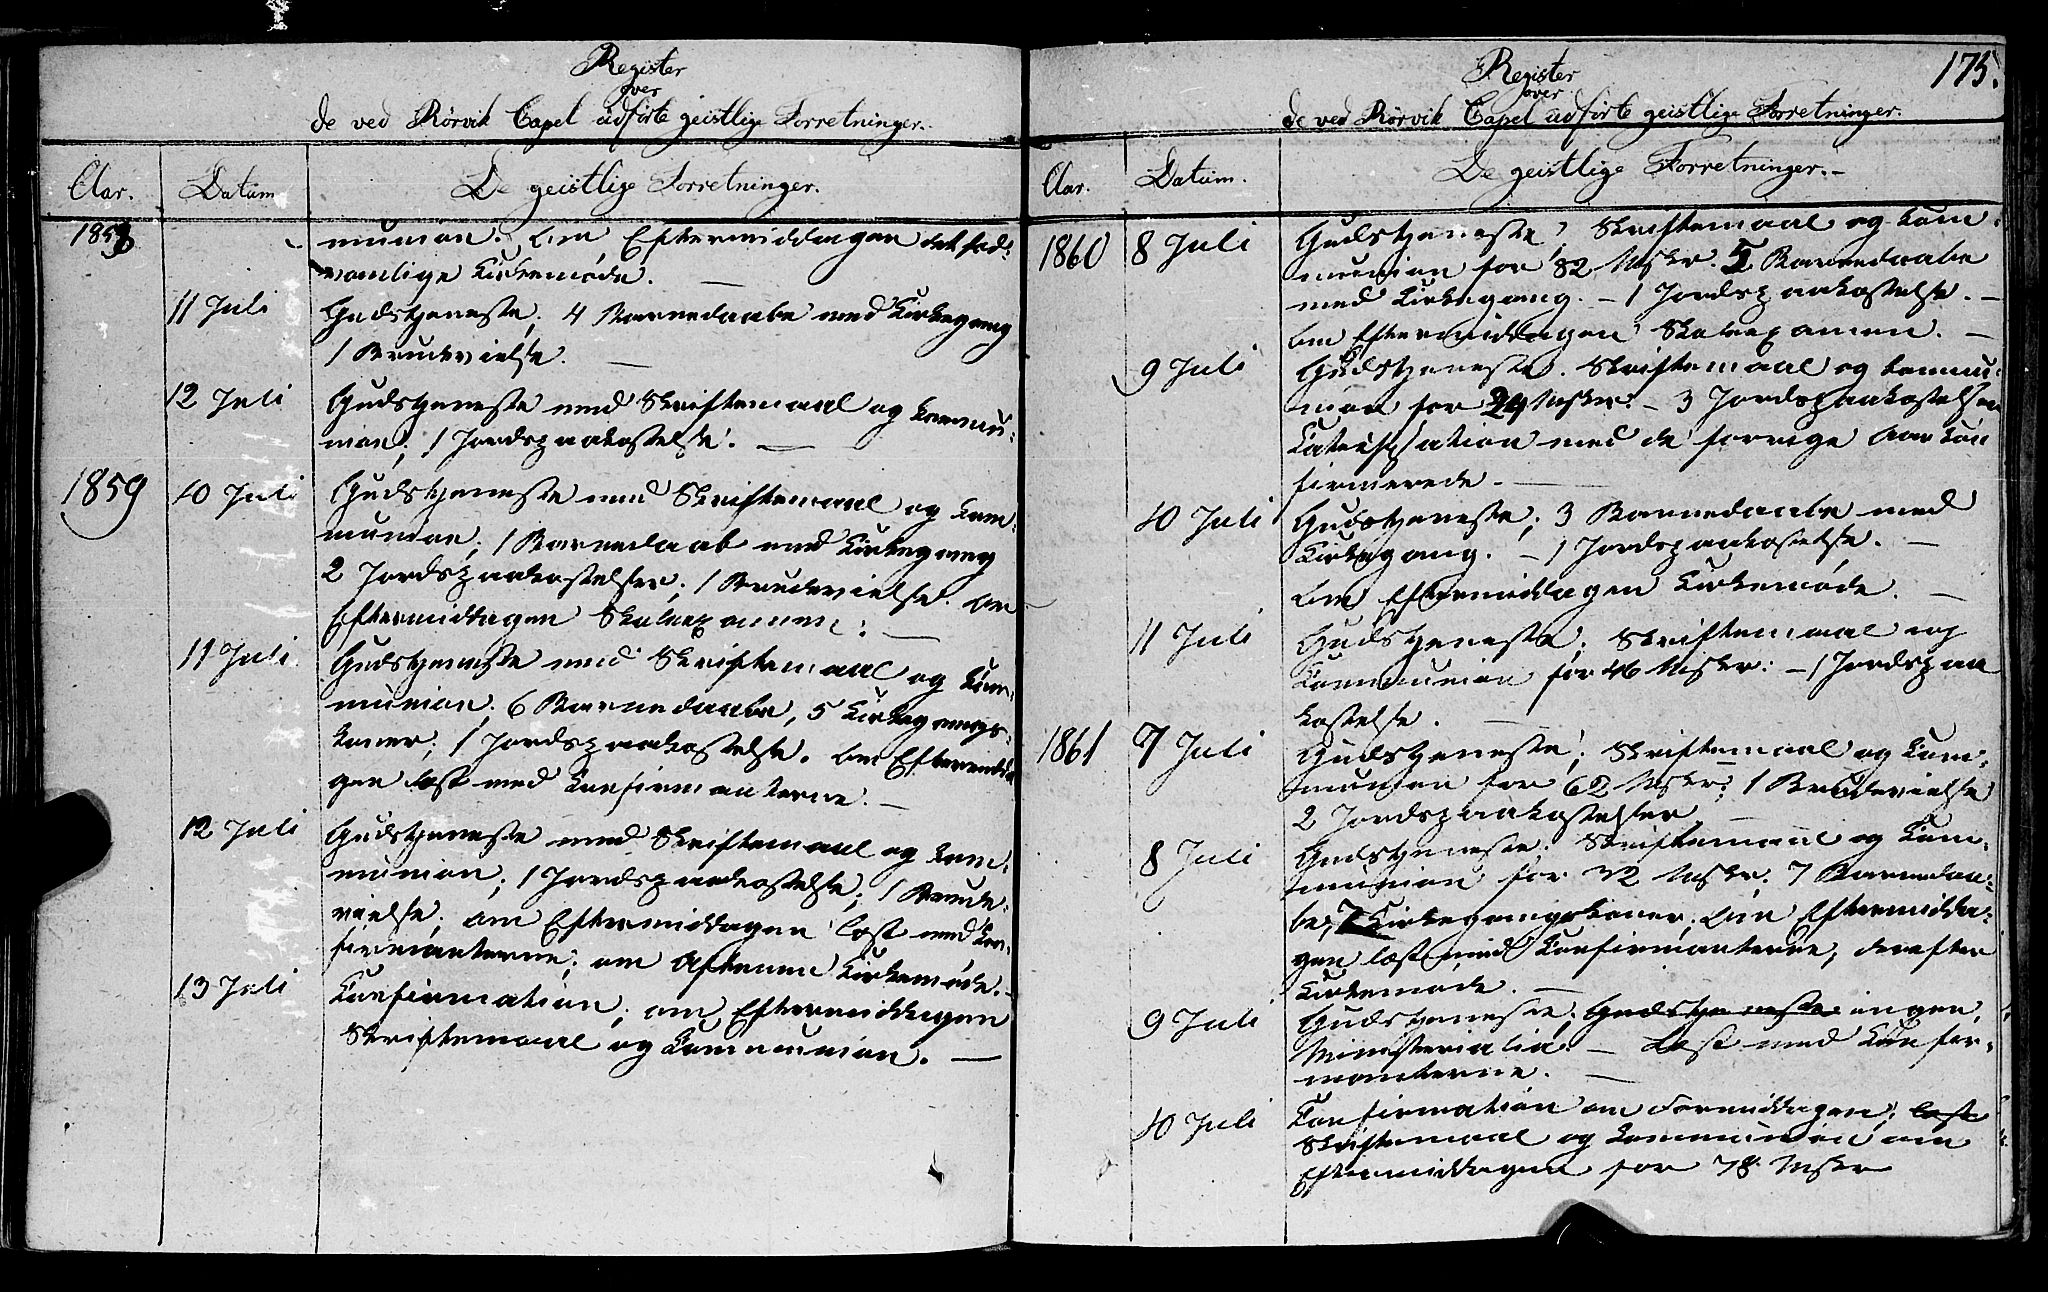 Register
over
de ved Rørvik Capel udførte geistlige Forretninger.
Aar.
Datum
De geistlige Forretninger.
1858
munion. Om Eftermiddagen det sæd-
vanlige Kirkemøde. —
11 Juli
Gudstjeneste; 4 Barnedaabe med Kirkegang
1 Brudevielse. —
12 Juli
Gudstjeneste med Skriftemaal og Kommu-
nion; 1 Jordspaakastelse. —
1859
10 Juli
Gudstjeneste med Skriftemaal og Kom-
munion; 1 Barnedaab med Kirkegang
2 Jordspaakastelser; 1 Brudevielse. Om
Eftermiddagen Skoleexamen. —
11 Juli
Gudstjeneste med Skriftemaal og Kom-
munion; 6 Barnedaabe, 5 Kirkegangs-
koner; 1 Jordspaakastelse. Om Eftermidda
gen læst med Konfirmanterne. —
12 Juli
Gudstjeneste med Skriftemaal og Kom-
munion; 1 Jordspaakastelse; 1 Brude-
vielse; om Eftermiddagen læst med Kon-
firmanterne; om Aftenen Kirkemøde. —
13 Juli
Konfirmation; om Eftermiddagen
Skriftemaal og Kommunion. —
175.
Register
over
de ved Rørvik Capel udførte geistlige Forretninger.
Aar.
Datum.
De geistlige Forretninger. —
1860
8 Juli
Gudstjeneste; Skriftemaal og Kom-
munion for 82 Mskr. 5 Barnedaabe
med Kirkegang. — 1 Jordspaakastelse. —
Om Eftermiddagen Skoleexamen. —
9 Juli
Gudstjeneste. Skriftemaal og Kommu-
nion for 24 Mskr. — 3 Jordspaakastelser
Katekisation med de forrige Aar kon
firmerede. —
10 Juli
Gudstjeneste; 3 Barnedaabe med
Kirkegang. — 1 Jordspaakastelse. —
Om Eftermiddagen Kirkemøde. —
11 Juli
Gudstjeneste; Skriftemaal og
Kommunion for 46 Mskr: — 1 Jordspaa
kastelse. —
1861
7 Juli
Gudstjeneste; Skriftemaal og Kom-
munion for 62 Mskr; 1 Brudevielse
2 Jordspaakastelser —
8 Juli
Gudstjeneste; Skriftemaal og Kom-
munion for 32 Mskr; 7 Barnedaa-
be, 7 Kirkegangskoner. Om Eftermidda-
gen læst med Konfirmanterne, derefter
Kirkemøde. —
9 Juli
Gudstjeneste; Gudstjeneste ingen
Ministerialia. — Læst med Konfir-
manterne. —
10 Juli
Konfirmation om Formiddagen; læst
Skriftemaal og Kommunion om
Eftermiddagen for 78 Mskr